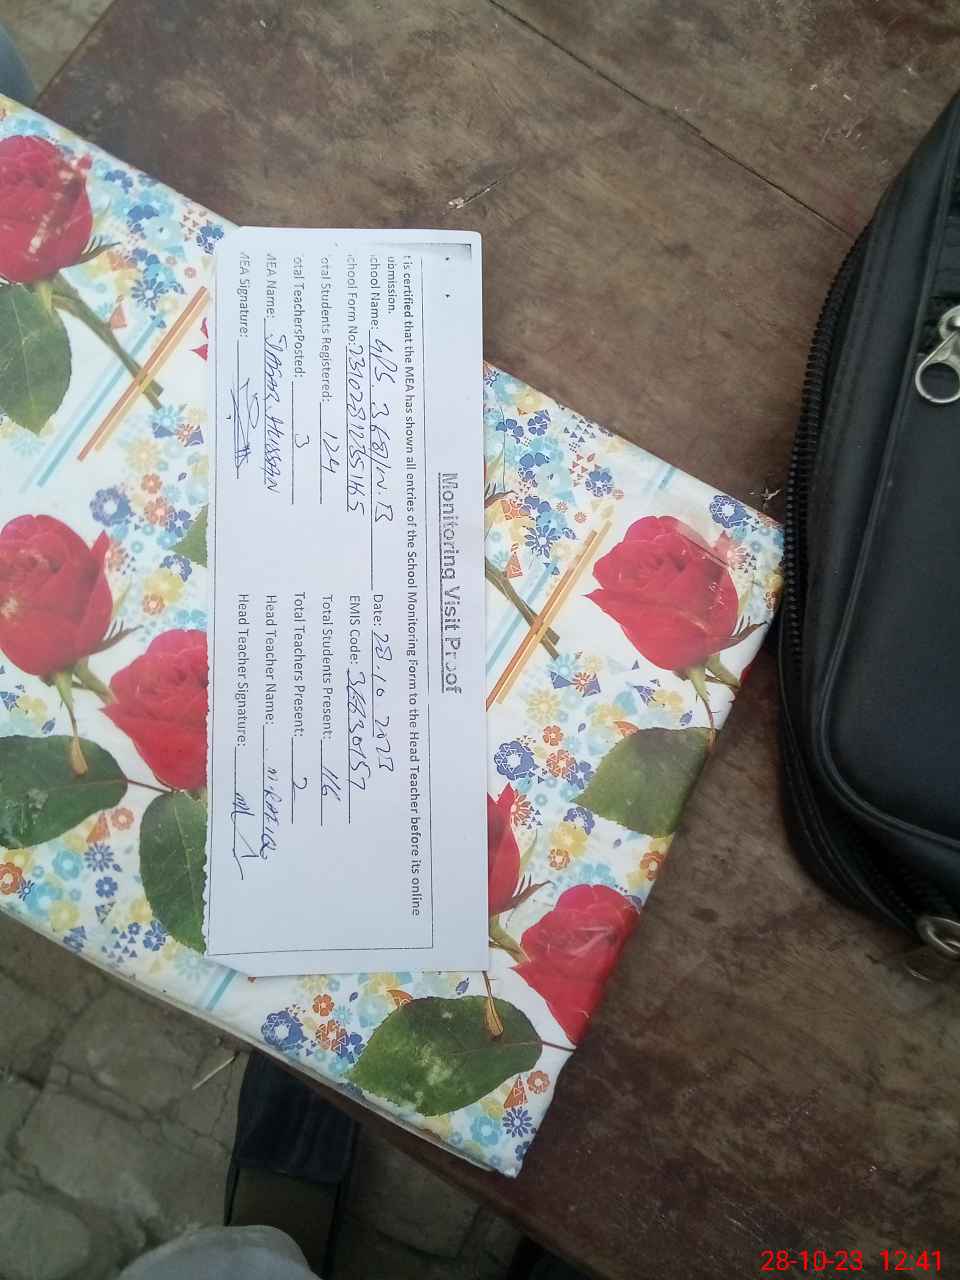 Monitoring Visit Proof
t is certified that the MEA has shown all entries of the School Monitoring Form to the Head Teacher before its online
ubmission.
chool Name: GPS. 368/W.B Date: 28.10.2023
chool Form No: EMIS Code:
otal Students Registered: 124 Total Students Present: 116
otal TeachersPosted: 3 Total Teachers Present: 2
MEA Name: HUSSAIN Head Teacher Name: M. RAFIQ
MEA Signature: Head Teacher Signature:
28-10-23 12:41